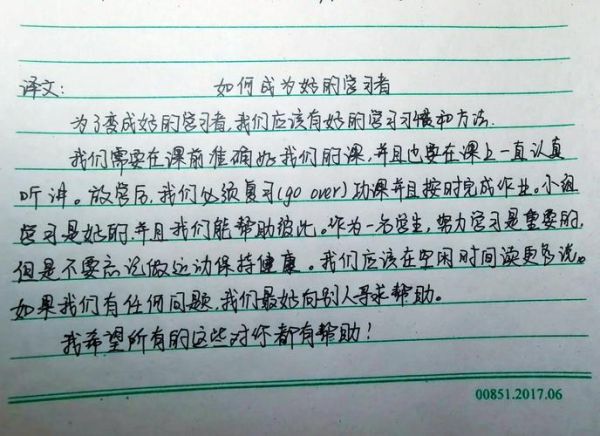 译文: 如何成为好的学习者
为了变成好的学习者,我们应该有好的学习习惯和方法.
我们需要在课前准确好我们的课,并且也要在课上一直认真
听讲。放学后,我们必须复习(go over)功课并且按时完成作业。小组
学习是好的,并且我们能帮助彼此。作为一名学生,努力学习是重要的,
但是不要忘记做运动保持健康。我们应该在空闲时间读更多说。
如果我们有任何问题,我们最好向别人寻求帮助。
我希望所有的这些对你都有帮助!
00851.2017.06